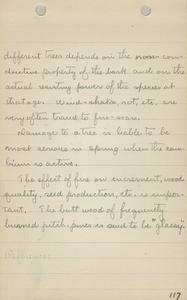 different trees depends on the non-con-
ductive property of the bark and on the
actual resisting power of the species at
that age. Wind-shake, rot, etc. are
very often traced to fire-scars.
Damage to a tree is liable to be
most serious in spring when the cam-
bium is active.
The effect of fire on increment, wood
quality, seed production, etc. is impor-
tant. The butt wood of frequently
burned pitch pines is said to be "glassy".
117